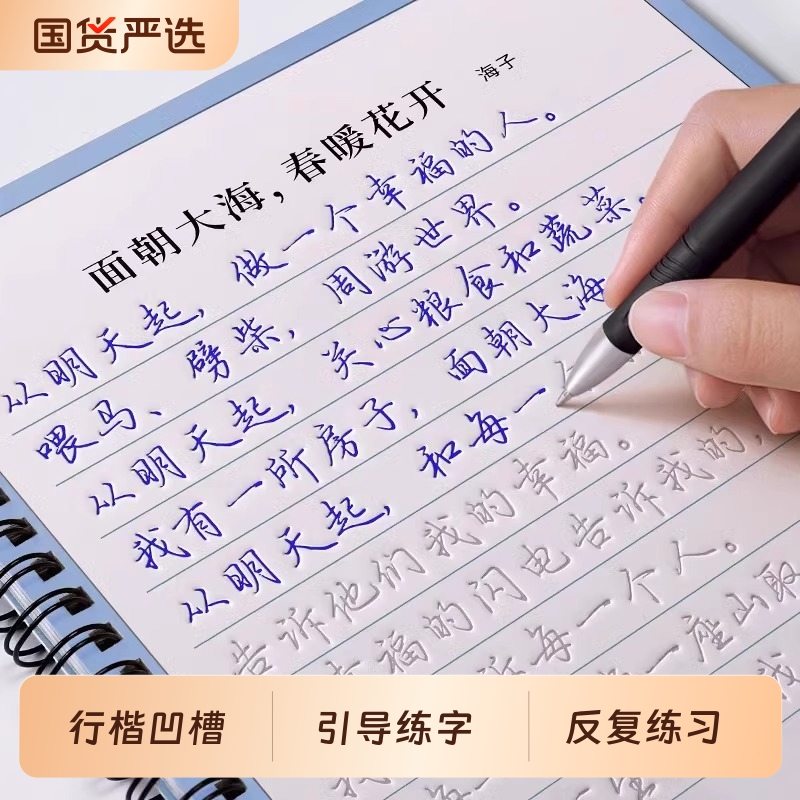 国货严选
面朝大海，春暖花开
海子
从明天起，做一个幸福的人。
喂马、劈柴，周游世界。
从明天起，关心粮食和蔬菜，
我有一所房子，面朝大海
从明天起，和每一
告诉他们我的幸福。
幸福的闪电告诉我的，
诉每一个人。
一座山取
我
行楷凹槽
引导练字
反复练习